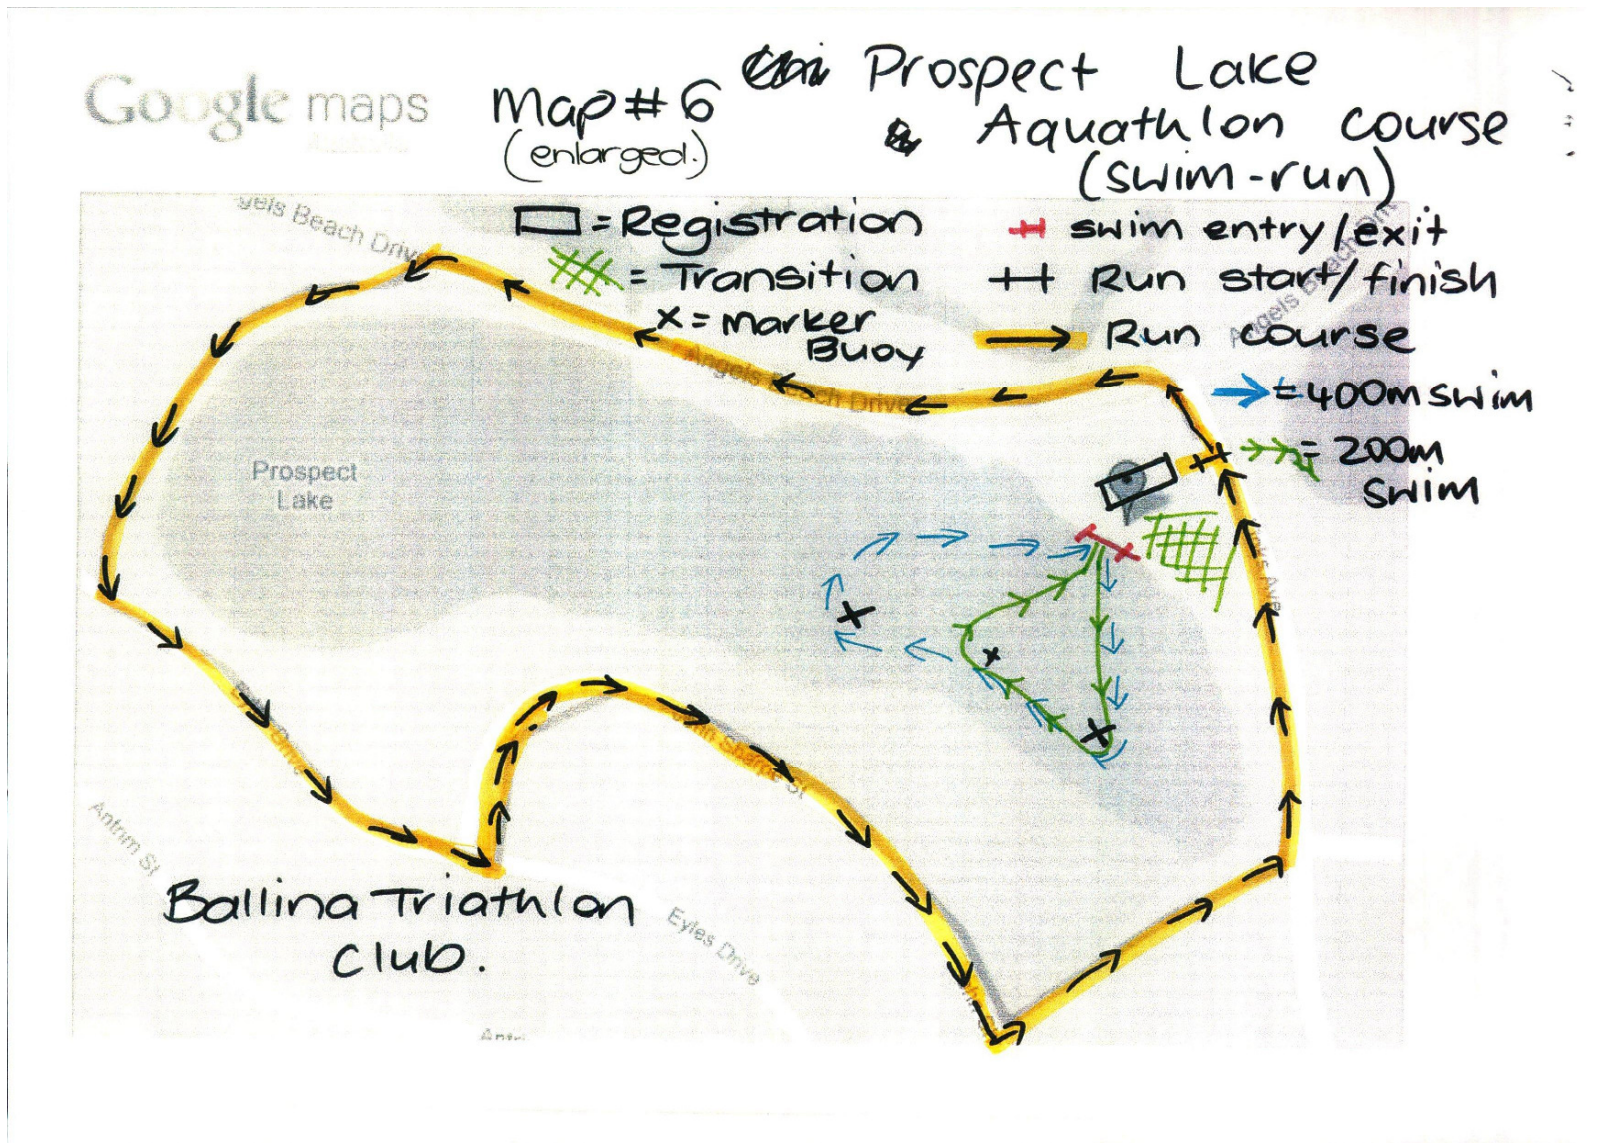 Google maps
Map # 6
(enlarged.)
Prospect Lake
Aquathlon course
(swim-run)
= Registration
= Transition
x = marker
Buoy
swim entry/exit
Run start/finish
Run course
= 400m swim
= 200m
swim
Angels Beach Drive
Angels Beach Drive
Prospect
Lake
John Sharpe St
Antrim St
Eyles Drive
Ballina Triathlon
Club.